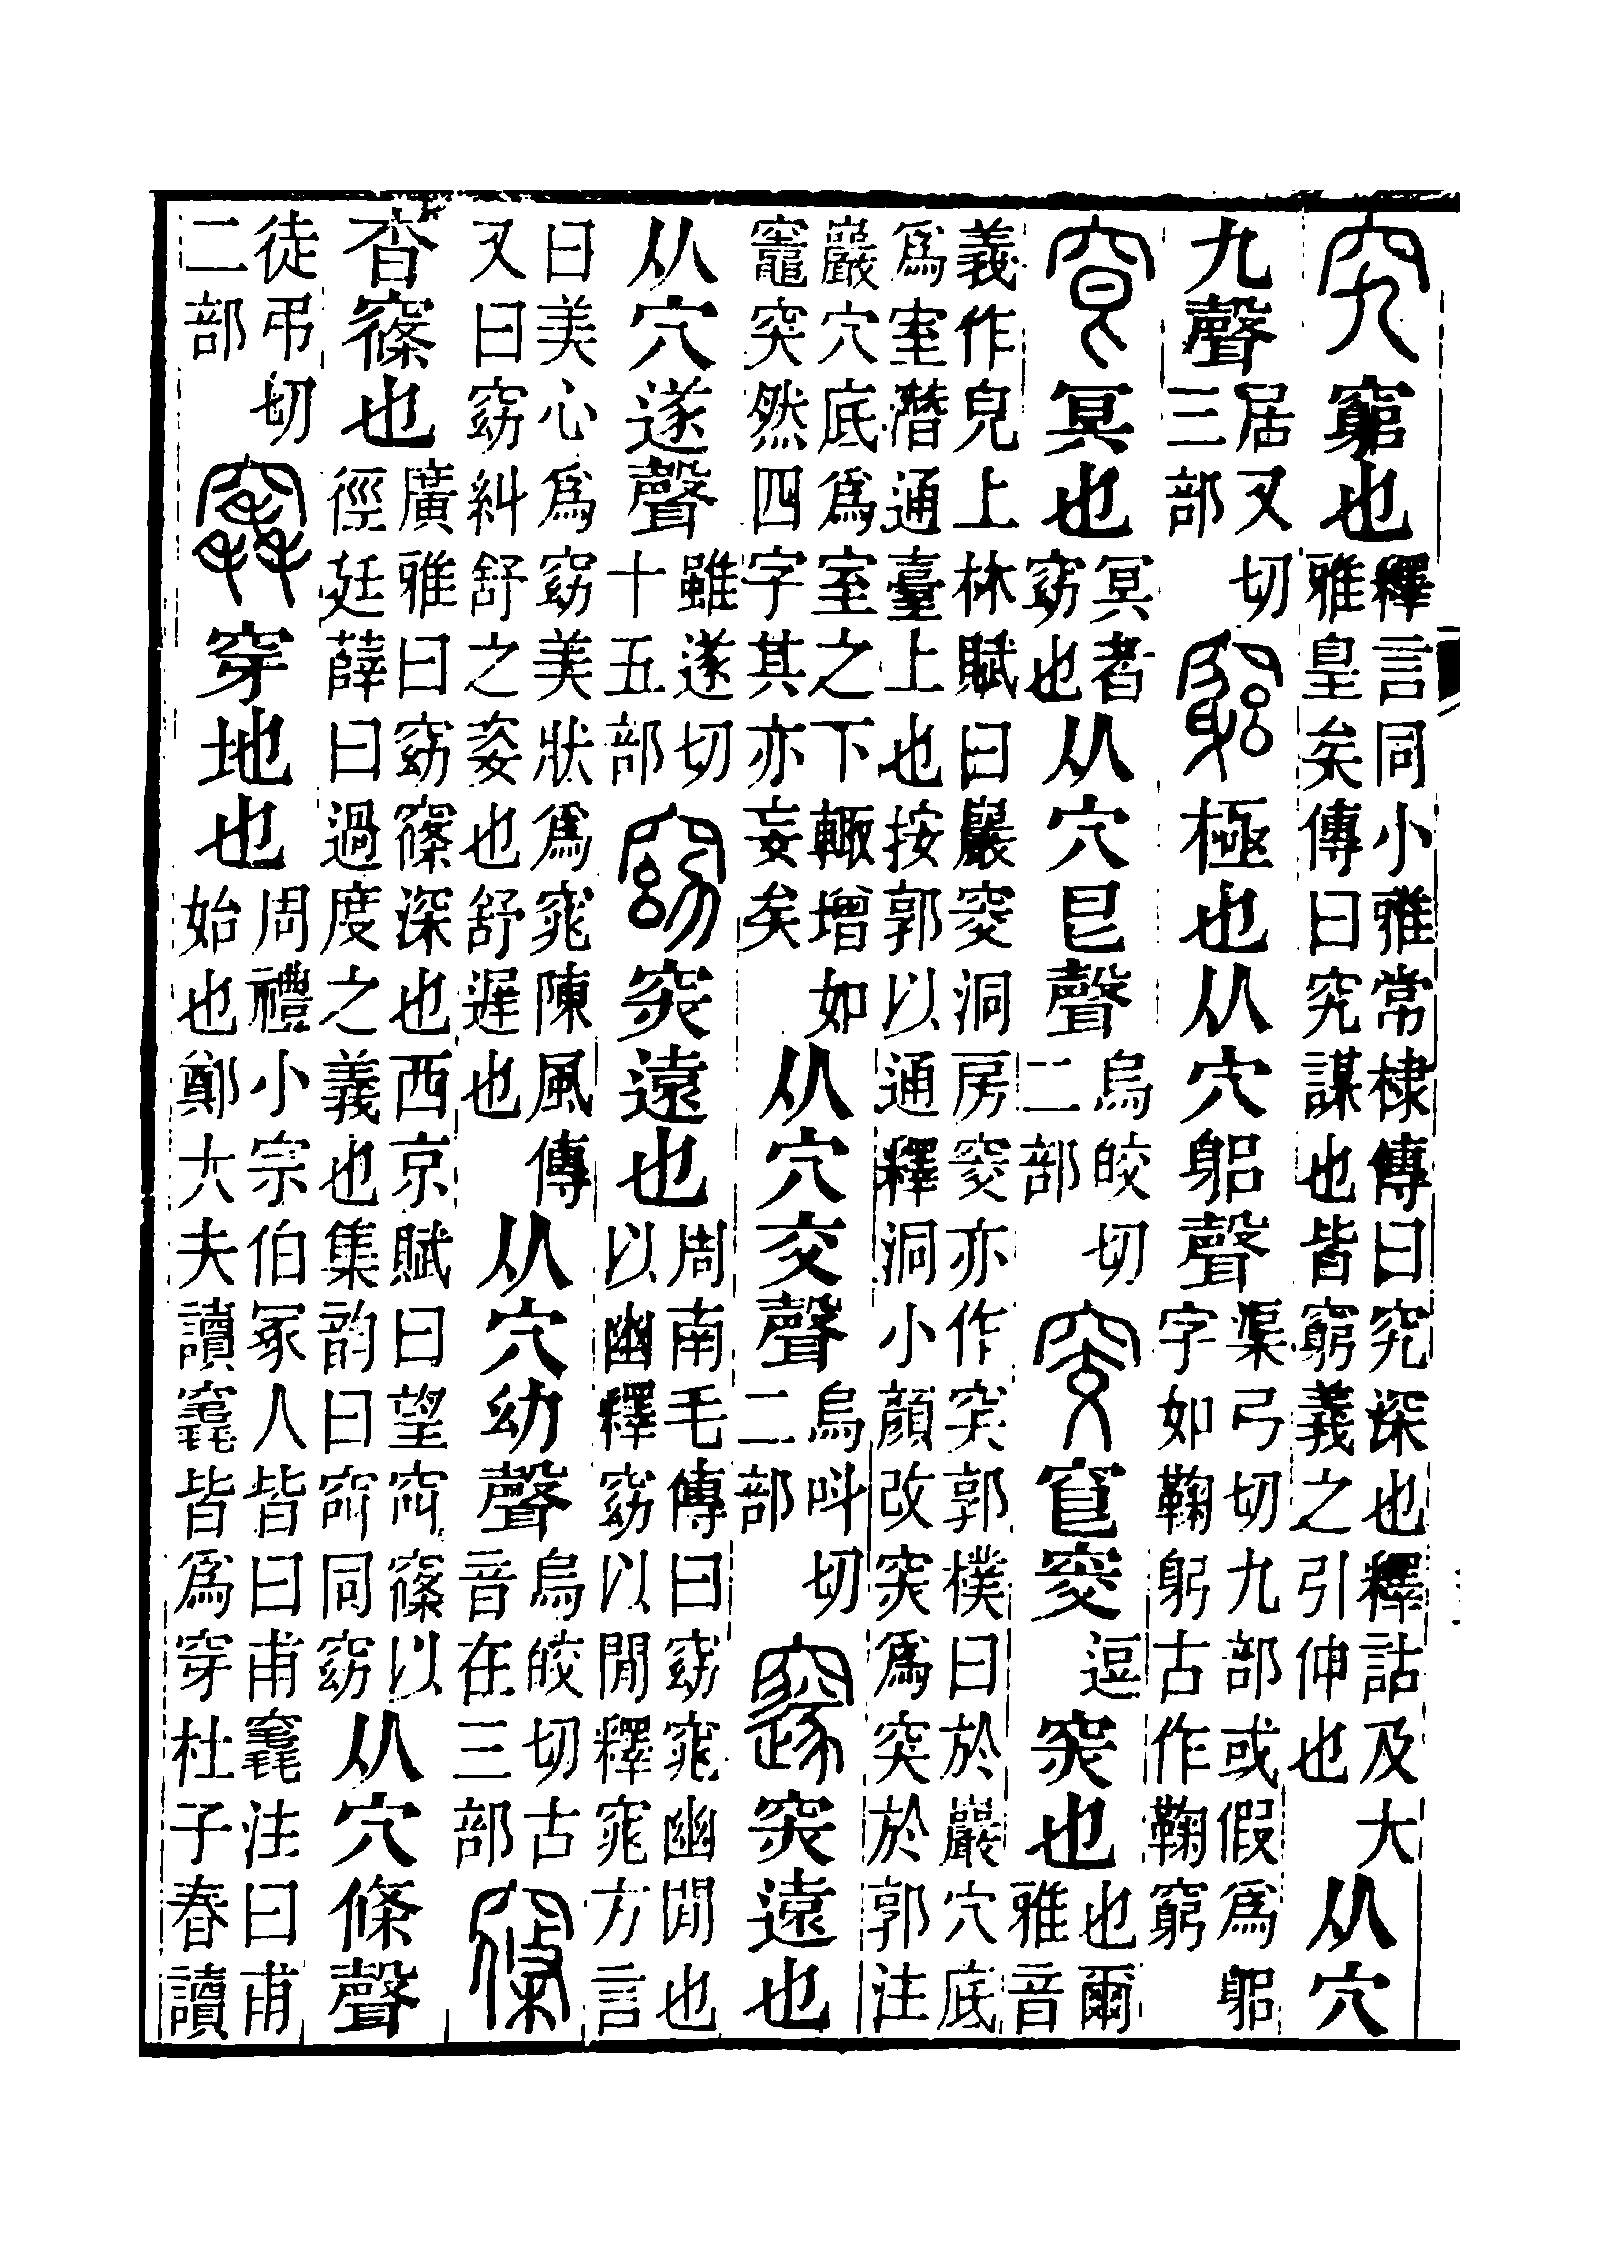 究窮也釋言同小雅常棣傳曰究深也釋詁及大雅皇矣傳曰究謀也皆窮義之引伸也从穴
九聲居又切三部竆極也从穴躳聲渠弓切九部或假爲躳字如鞠躬古作鞠窮
窅冥也冥者窈也从穴皀聲烏皎切二部窔窅窔逗𥥍也也爾雅音
義作皃上林賦曰巖窔洞房窔亦作突郭樸曰於巖穴底爲室潛通臺上也按郭以通釋洞小顔改𥥍爲突於郭注
巖穴底爲室之下輙增如竈突然四字其亦妄矣从穴交聲烏叫切二部邃𥥍遠也
从穴遂聲雖遂切十五部窈𥥍遠也周南毛傳曰窈窕幽閒也以幽釋窈以閒釋窕方言
曰美心爲窈美狀爲窕陳風傳又曰窈糾舒之姿也舒遲也从穴幼聲烏皎切古音在三部窱
杳窱也廣雅曰窈窱深也西京賦曰望㝔窱以徑廷薛曰過度之義也集韵曰㝔同窈从穴條聲
徒弔切二部竁穿地也周禮小宗伯冢人皆曰甫竁注曰甫始也鄭大夫讀竁皆爲穿杜子春讀